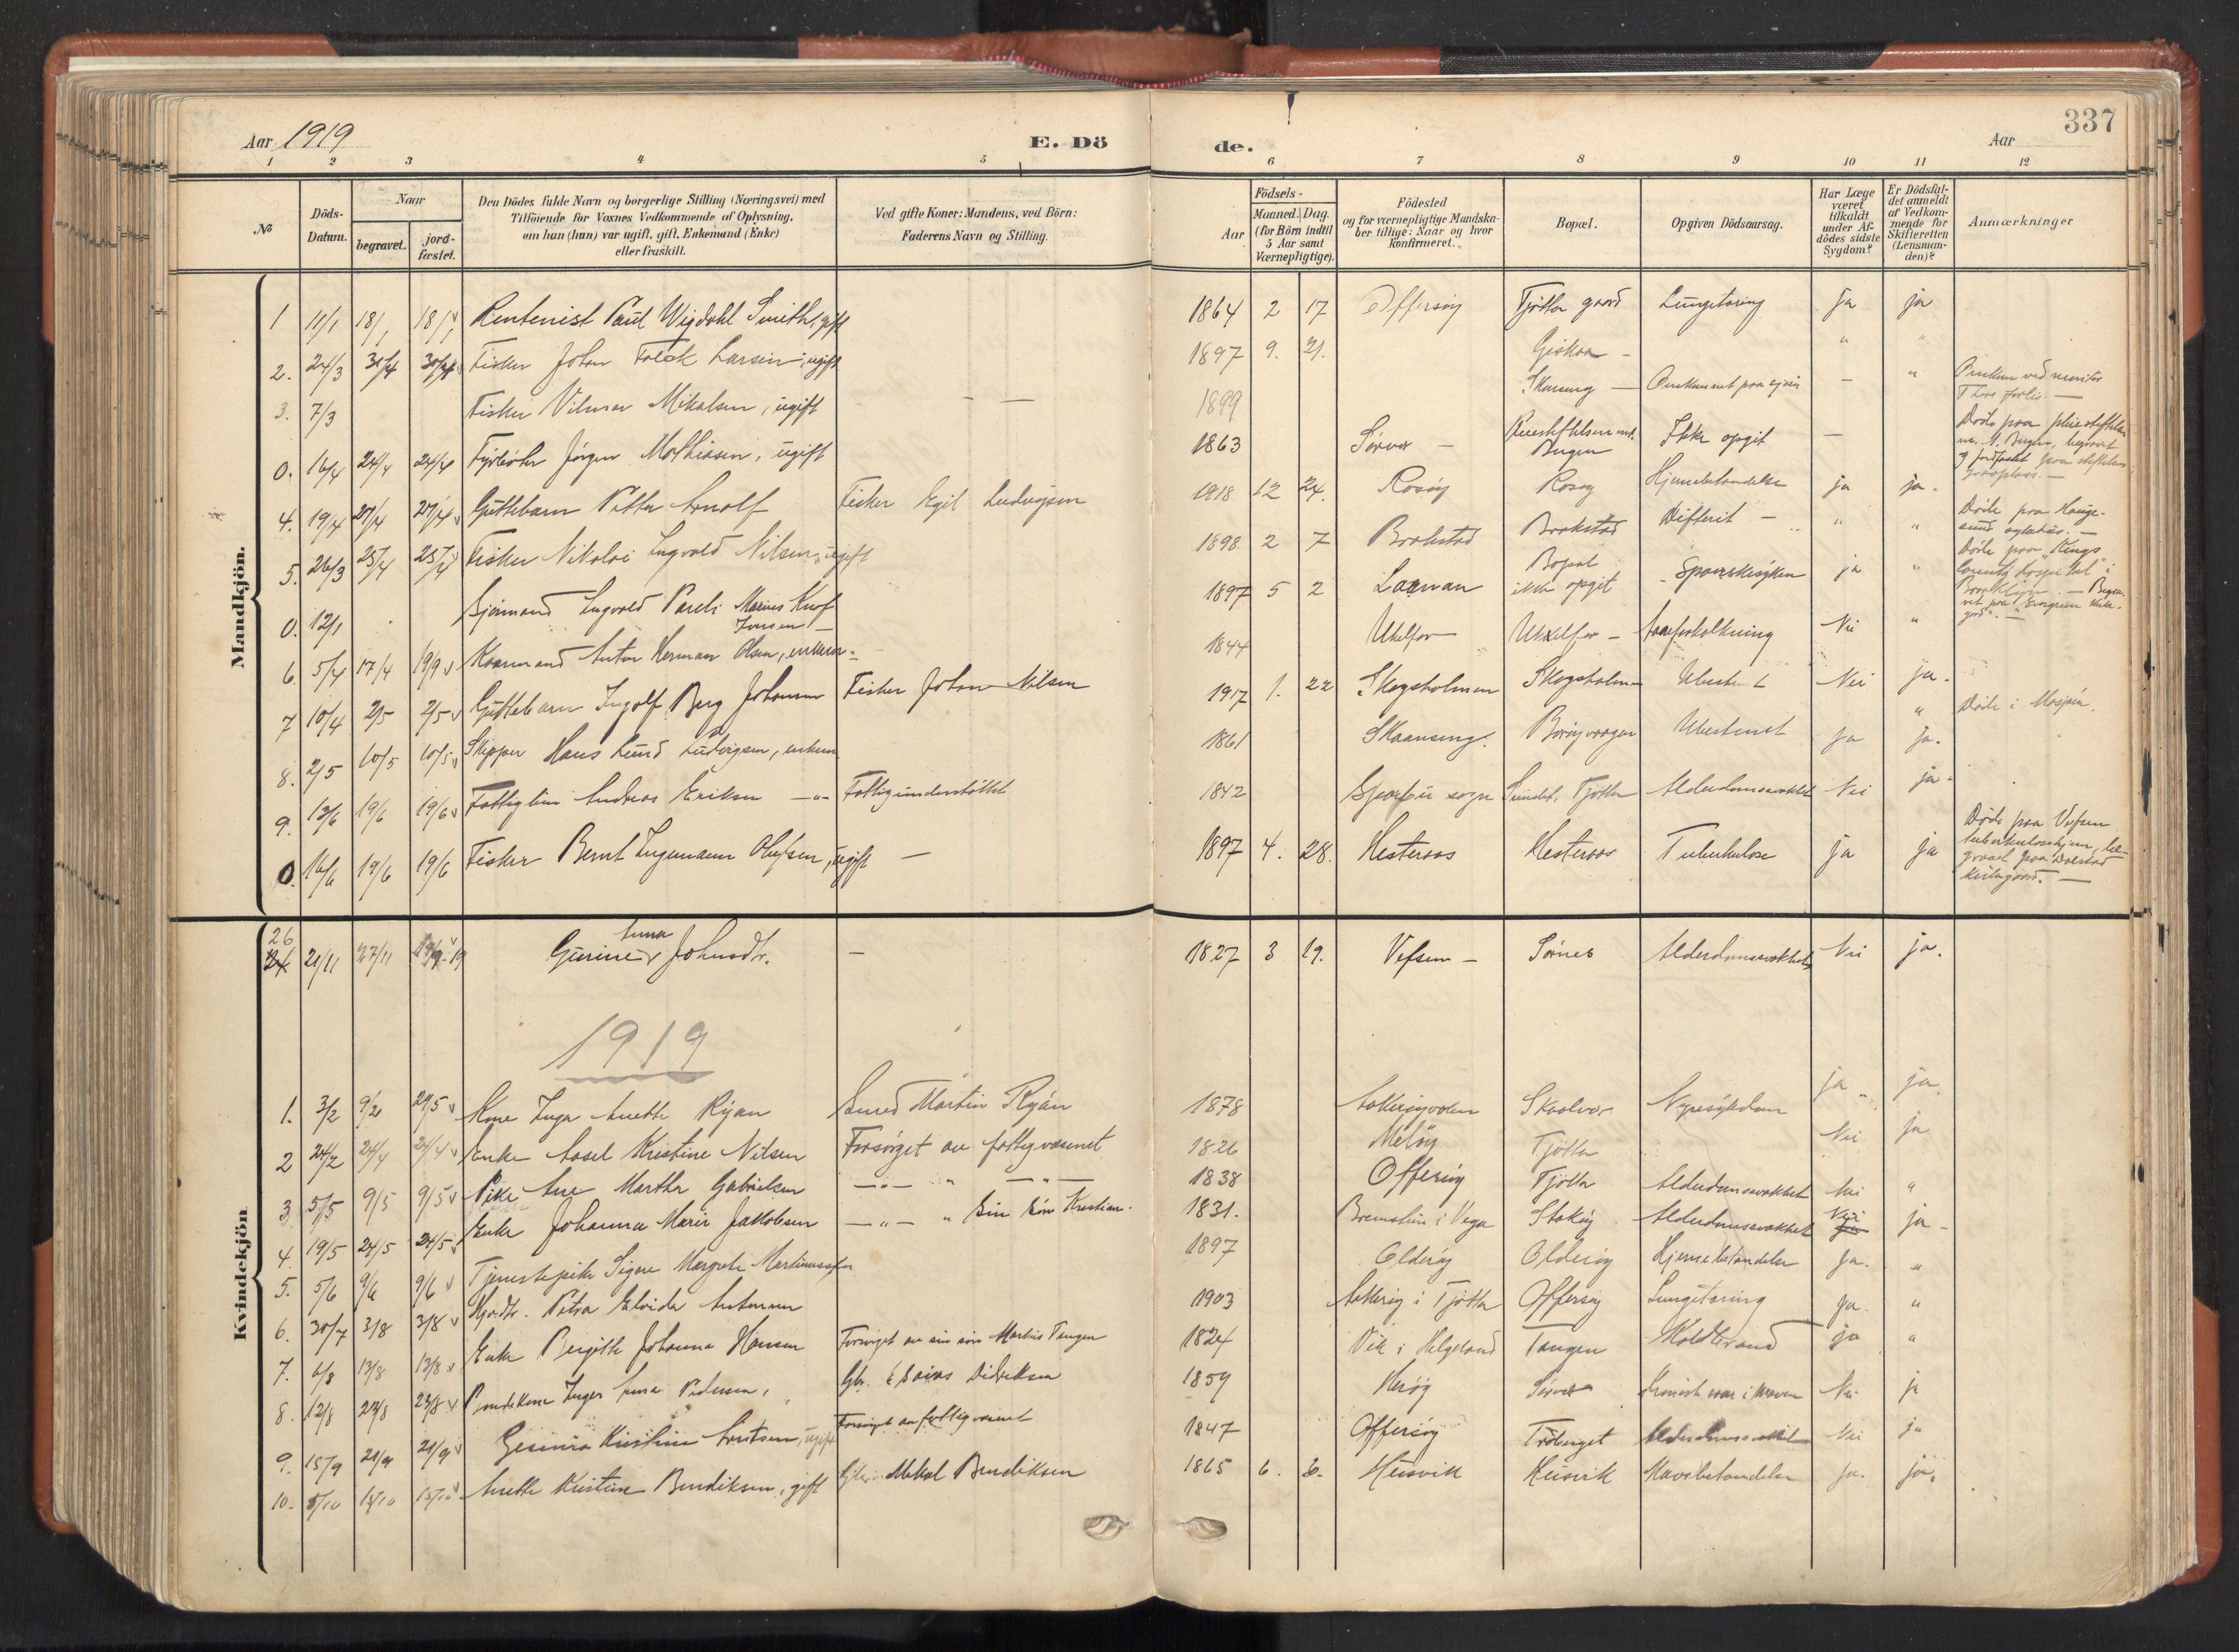 337
Aar 1919
E. Dö
de.
Aar
1 2 3 4 5 6 7 8 9 10 11 12
№
Döds-
Datum.
Naar
begravet.
jord-
fæstet.
Den Dödes fulde Navn og borgerlige Stilling (Næringsvei) med
Tilföiende for Voxnes Vedkommende af Oplysning,
om han (hun) var ugift, gift, Enkemand (Enke)
eller fraskilt.
Ved gifte Koner: Mandens, ved Börn:
Faderens Navn og Stilling.
Födsels-
Aar
Maaned. Dag.
(for Börn indtil
5 Aar samt
Værnepligtige).
Födested
og for værnepligtige Mandska-
ber tillige: Naar og hvor
konfirmeret.
Bopæl.
Opgiven Dödsaarsag.
Har Læge
været
tilkaldt
under Af-
dödes sidste
Sygdom?
Er Dödsfal-
det anmeldt
af Vedkom-
mende for
Skifteretten
(Lensman-
den)?
Anmærkninger
Mandkjön.
1 11/1 18/1 18/1 Rentenist Paul Wigdahl Smith, gift 1864 2 17 Offersöy Tjötta gaard Lungetæring ja ja
2. 24/3 Fisker Johan Falck Larsen, ugift 1897 9. 21. Giskaa - " "
3. 7/3 Fisker Vilmar Mikalsen, ugift — 1899 Skonseng — Omkommet paa sjöen — "
0. 16/4 24/4 24/4 Fyrböter Jörgen Mathiasen, ugift 1863 Sörvær — Pleiestiftelsen Bergen Ikke opgit —
4. 19/4 27/4 27/4 Guttebarn Petter Arnolf Fisker Egil Ludvigsen 1918 12 24. Rosöy Rosöy Hjernebetændelse ja ja.
5. 26/3 25/4 25/4 Fisker Nikolai Ingvald Nilsen, ugift 1898 2 7 Brakstad Brakstad Difterit — " " Döde paa Hauge-
sund sykehus. —
0. 12/1 Sjömand Ingvald Pareli Marius Knof
Jensen — 1897 5 2 Laanan Bopæl
ikke opgit Spanskesyken ja " Döde paa "Kings
County Hospital" i
Brooklyn. — Begra-
vet paa "Evergreen Kirke-
gård". —
6. 5/4 17/4 19/9 Kaarmand Anton Herman Olsen, enkem. 1844 Ukelfor Nei "
7 10/4 2/5 2/5 Guttebarn Ingolf Berg Johansen Fisker Johan Nilsen 1917 1. 22 Skogsholmen Skogsholmen Ubestemt Nei ja.
8. 2/5 10/5 10/5 Skipper Hans Lund Ludvigsen, enkem. 1861 Skaanseng. Ubestemt ja ja. Döde i Mosjöen.
9. 13/6 19/6 19/6 Fattiglem Andreas Eriksen —"— Fattigunderstöttet 1842 sogn Sundet, Tjötta Alderdomssvakhet Nei ja.
0. 16/6 19/6 19/6 Fisker Bernt Ingemann Olufsen, ugift — 1897 4. 28. Hesteraas Hesteraas Tuberkulose ja ja Döde paa Vefsen
tuberkulosehjem, be-
gravet paa Dolstad
kirkegaard. —
Kvindekjön
26
24 21/11 27/11 19 Gurine Anna Johnsdtr. — 1827 3 19. Vefsen — Sörnes Alderdomssvakhet Nei ja.
1919
1. 3/2 9/2 24/5 Kone Inga Anette Ryan Smed Martin Ryan 1878 Skaalvær Nyresykdom ja ja
2 24/2 24/4 24/4 Enke Aasel Kristine Nilsen Forsörget av fattigvæsenet 1826 Meløy Tjötta Nei ja
3 5/5 9/5 9/5 Pike Ane Martha Gabrielsen —"— " —"— 1838 Offersöy Tjötta Alderdomssvakhet Nei "
4. 19/5 24/5 24/5 Enke Johanna Marie Jakobsen —"— " sin sön Kristian. 1831. Bremstein i Vega Stoköy Alderdomssvakhet Nei ja —
5. 5/6 9/6 9/6 Tjenestepike Signe Margrete Martinussen 1897 Olderöy Olderöy Hjernebetændelse ja. "
6. 30/7 3/8 3/8 Hjmdtr. Petra Elvida Antonsen 1903 i Tjötta Offersöy Lungetæring ja. "
7. 6/8 13/8 13/8 Enke Bergitte Johanna Hansen Forsörget av sin sön Martin Tangen 1824 Vik i Helgeland Tangen Koldbrand ja "
8. 12/8 23/8 23/8 Bondekone Inger Anna Pedersen, Gbr. Esaias Didriksen 1859 Heröy Sörvær Kronisk saar i maven Nei ja
9. 15/9 21/9 21/9 Gesinia Kristine Arntsen, ugift Forsörget av fattigvæsenet 1847 Offersöy Tröberget Alderdomssvakhet Nei ja
10. 5/10 15/10 15/10 Anette Kristine Bendiksen, gift Gbr. Mikal Bendiksen 1865 6. Husvik Husvik Mavebetændelse ja. ja.